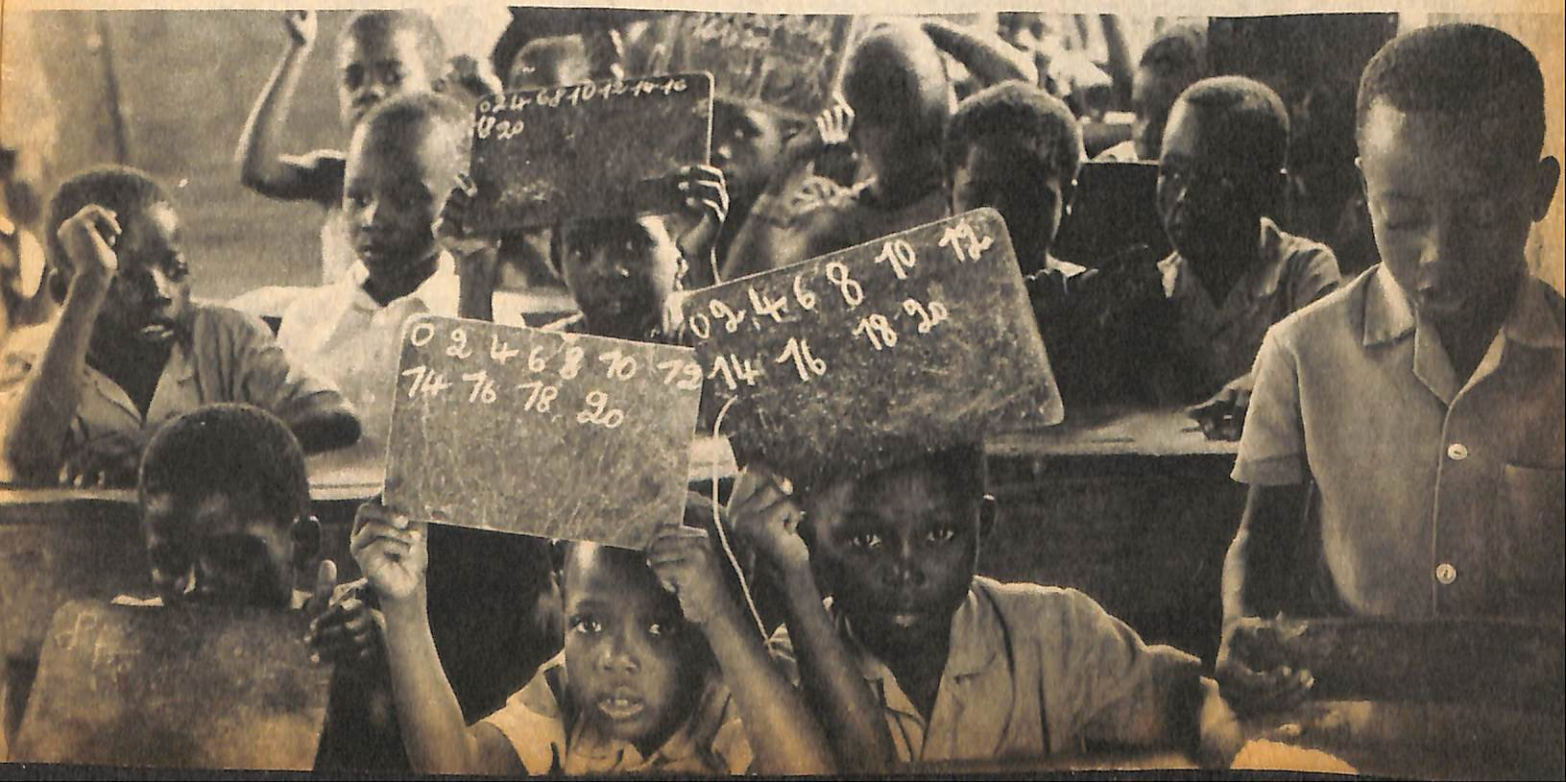 0 2 4 6 8 10 12 14 16
18 20
0 2 4 6 8 10 12
14 16 18 20
0 2 4 6 8 10 12
14 16 18 20